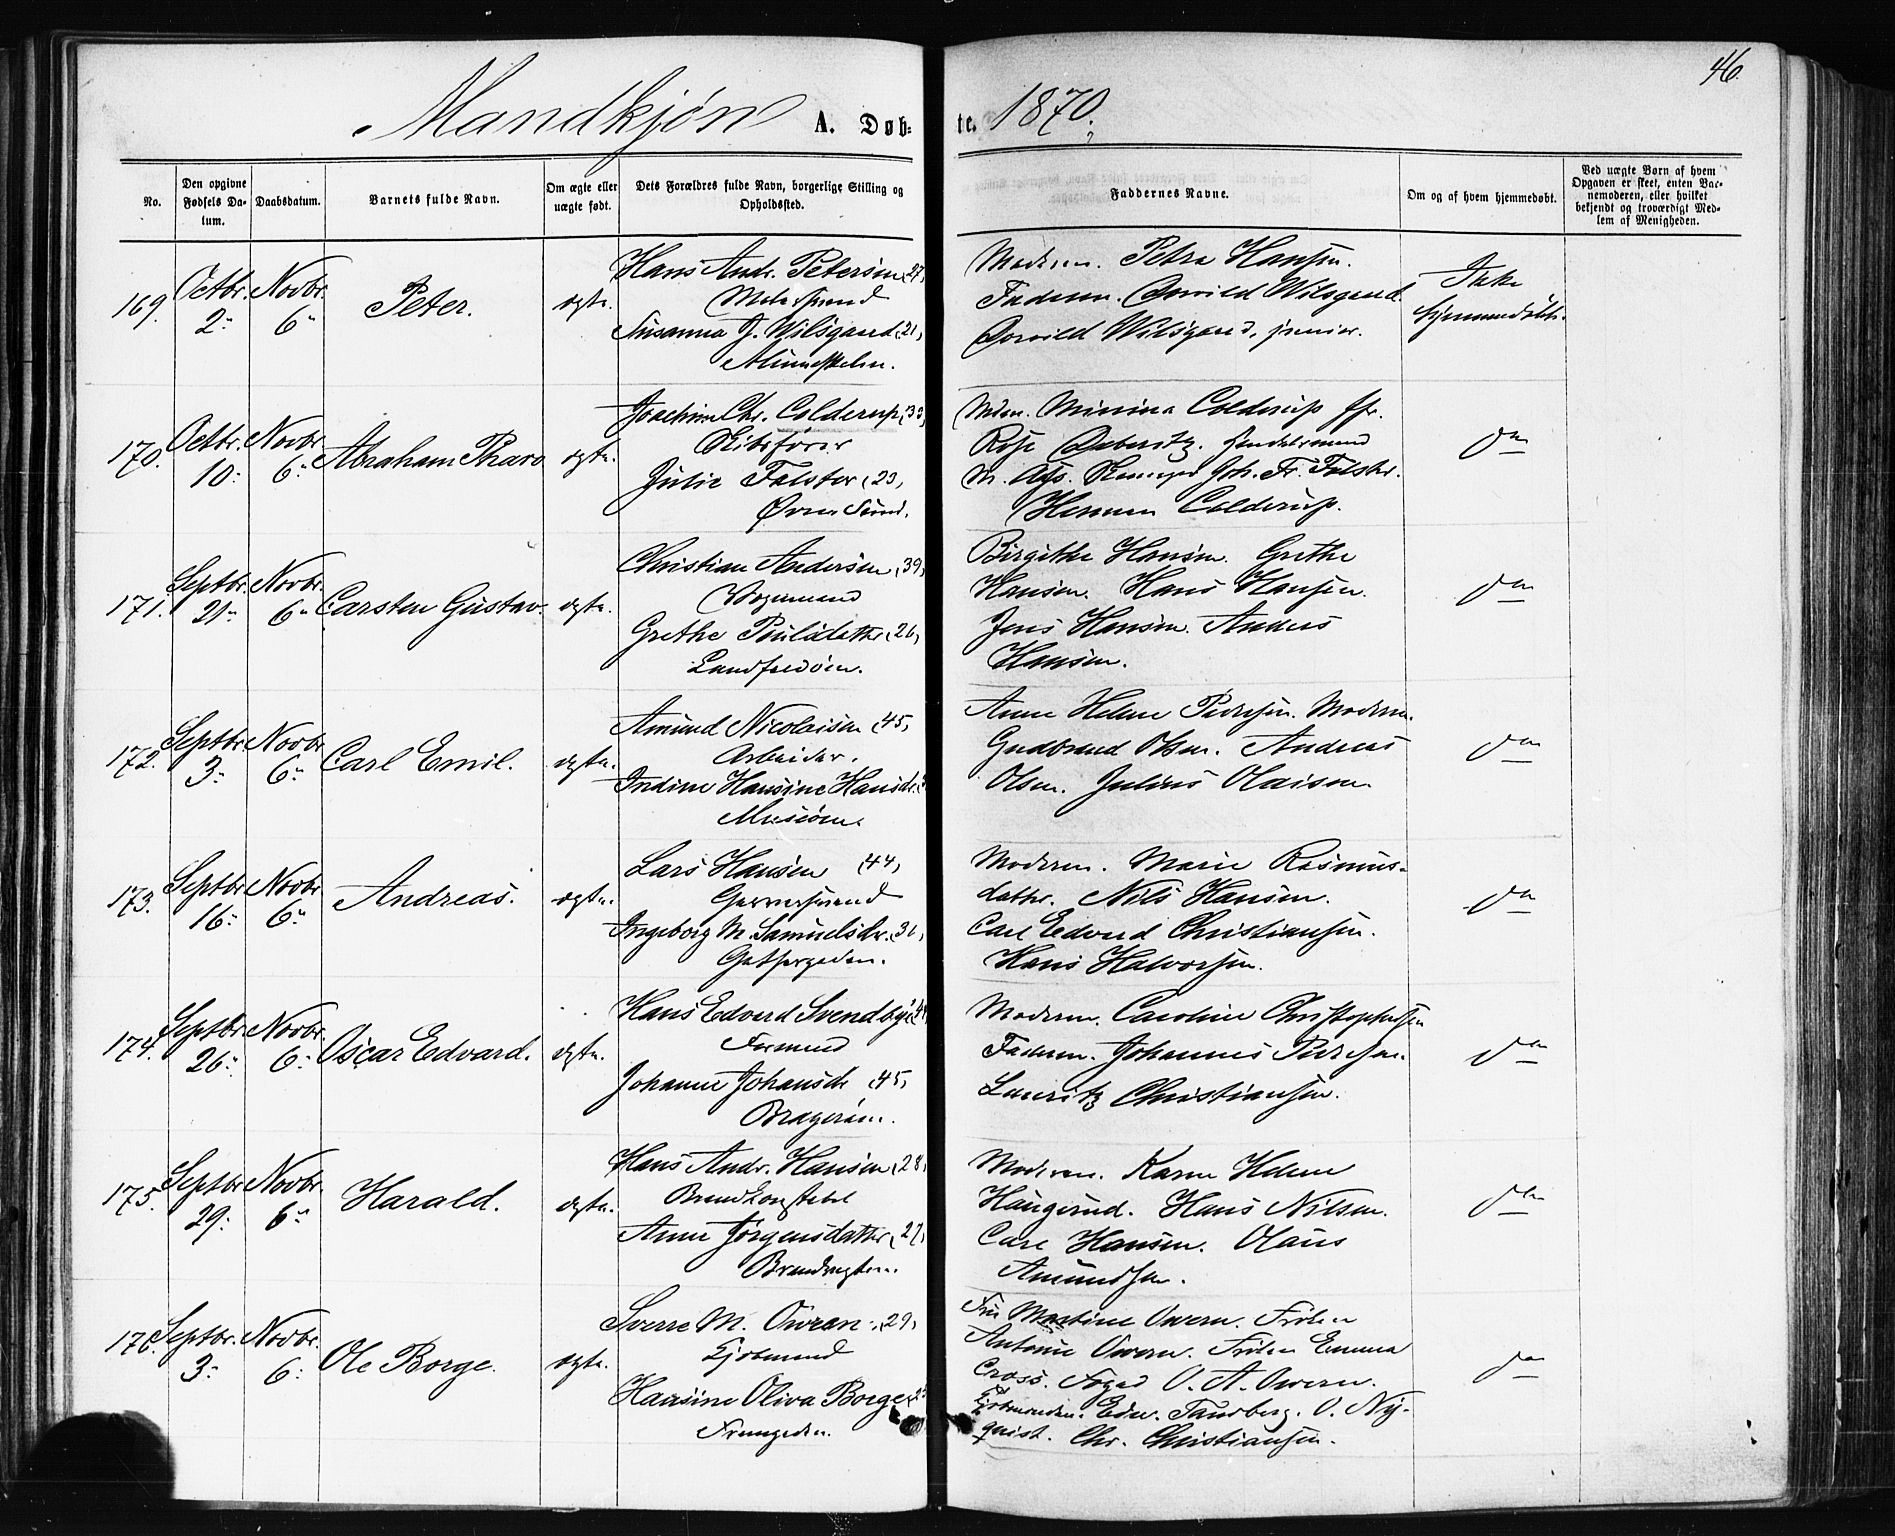 46.
Mandkjøn A. Døb- te. 1870.
No.
Den opgivne Fødsels Da- tum.
Daabsdatum.
Barnets fulde Navn.
Om ægte eller uægte født.
Dets Forældres fulde Navn, borgerlige Stilling og Opholdssted.
Faddernes Navne.
Om og af hvem hjemmedøbt.
Ved uægte Børn af hvem Opgaven er skeet, enten Bar- nemoderen, eller hvilket bekjendt og troværdigt Med- lem af Menigheden.
169. Octbr. 2. Novbr. 6. Peter. ægte.
Hans Andr. Petersen, 27,
Susanna J. Wilsgaard, 21,
Moderen. Petra Hansen.
Faderen. Wilsgaard
Wilsgaard, junior.
Ikke
hjemmedøbt.
170. Octbr. 10. Novbr. 6. Abraham Tharo ægte.
Joachim Chr. Colderup, 33,
Skibsfører
Julie Falster, 23,
Øvre Sund.
Mdm. Minina Colderup
Joh. Fr. Falster.
Herman Colderup.
do
171. Septbr. 21. Novbr. 6. Carsten Gustav. ægte.
Christian Andersen, 39,
Vognmand
Grethe Poulsdatter, 26,
Landfaldøen.
Birgithe Hansen. Grethe
Hansen. Hans Hansen.
Jens Hansen. Anders
Hansen.
do
172. Septbr. 3. Novbr. 6. Carl Emil. ægte.
Amund Nicolaisen, 45,
Arbeider.
Indine Hansine Hansd.
Anne Helene Pedersen. Moderen.
Gudbrand Olsen. Andreas
Olsen. Julius Olaisen.
do
173. Septbr. 16. Novbr. 6. Andreas. ægte.
Lars Hansen, 44,
Garversvend
Ingeborg M. Samuelsdr.
Moderen. Marie Rasmus-
datter. Nils Hansen.
Carl Edvard Christiansen.
Hans Halvorsen.
do
174. Septbr. 26. Novbr. 6. Oscar Edvard. ægte.
Hans Edvard Svendby
Formand
Johanne Johansd., 45,
Bragerøen.
Moderen. Caroline Christophersen
Faderen. Johannes Pedersen.
Lauritz Christiansen.
do
175. Septbr. 29. Novbr. 6. Harald. ægte.
Hans Andr. Hansen, 28,
Brandkonstabel
Anne Jørgensdatter, 27,
Brandvagten.
Moderen. Karen Helene
Haugerud. Hans Nilsen.
Carl Hansen. Olaus
Amundsen.
do
176. Septbr. 3. Novbr. 6. Ole Borge. ægte.
Sverre M. Owren, 29,
Kjøbmand
Hansine Oliva Borge
Fru Martine Owern. Frøken
Antonie Owern. Frøken Emma
Cross. Foged O. A. Owern.
Kjøbmænden. Edv. Tandberg. O. Ny-
quist. Chr. Christiansen.
do